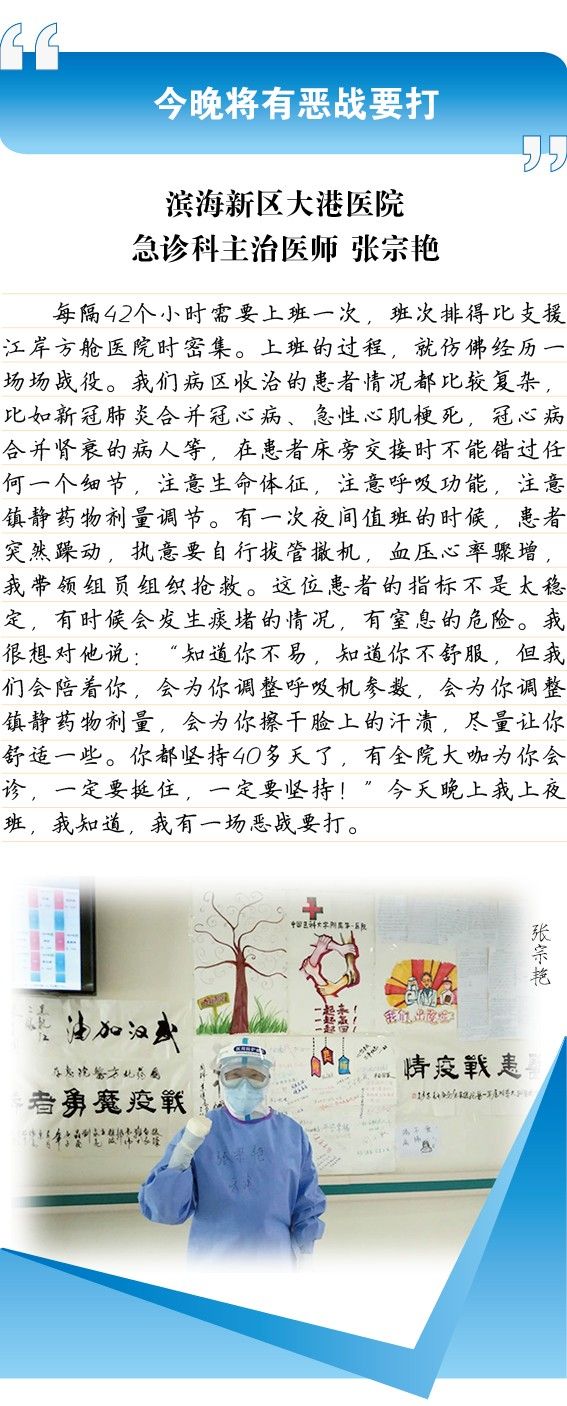 今晚将有恶战要打
滨海新区大港医院
急诊科主治医师 张宗艳
每隔42个小时需要上班一次，班次排得比支援
江岸方舱医院时密集。上班的过程，就仿佛经历一
场场战役。我们病区收治的患者情况都比较复杂，
比如新冠肺炎合并冠心病、急性心肌梗死，冠心病
合并肾衰的病人等，在患者床旁交接时不能错过任
何一个细节，注意生命体征，注意呼吸功能，注意
镇静药物剂量调节。有一次夜间值班的时候，患者
突然躁动，执意要自行拔管撤机，血压心率骤增，
我带领组员组织抢救。这位患者的指标不是太稳
定，有时候会发生痰堵的情况，有窒息的危险。我
很想对他说：“知道你不易，知道你不舒服，但我
们会陪着你，会为你调整呼吸机参数，会为你调整
镇静药物剂量，会为你擦干脸上的汗渍，尽量让你
舒适一些。你都坚持40多天了，有全院大咖为你会
诊，一定要挺住，一定要坚持！”今天晚上我上夜
班，我知道，我有一场恶战要打。
张宗艳
中国医科大学附属第一医院
一起来
油加汉武
情疫戰患
者勇魔疫戰
张宗艳